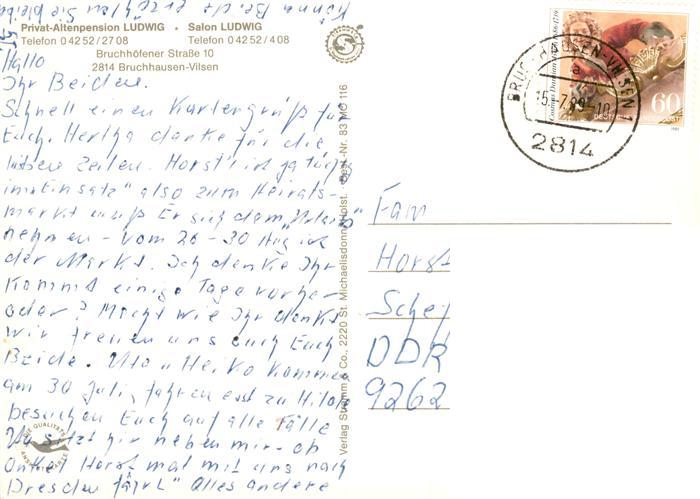 Könne Be. da erzählen Sie bleiben
Privat-Altenpension LUDWIG • Salon LUDWIG
Telefon 0 42 52 / 27 08 Telefon 0 42 52 / 4 08
Bruchhöfener Straße 10
2814 Bruchhausen-Vilsen
Hallo
Ihr Beiden.
Schnell einen Kartengruß für
Euch. Hertha danke für die
lieben Zeilen. Horst ist ja tüchtig
im Einsatz" also zum Heirats-
markt muß Er sich dem „Urlaub"
nehmen - vom 26 - 30 Aug ist
der Markt. Ich denke Ihr
kommt einige Tage vorher
oder? Macht wie Ihr denkt
wir freuen uns auch Euch
Beide. Uta u Heiko kommen
am 30 Juli, fahren erst zu Hilde
besuchen Euch auf alle Fälle
Uta sitzt hir neben mir - ob
Onkel Horst mal mit uns nach
Dresden fährt" alles andere
DIE QUALITÄTS
ANSICHTSKARTE
Verlag Stramm & Co., 2220 St. Michaelisdonn/Holst. Best.-Nr. 83 MC 116
BRUCHHAUSEN-VILSEN 1
a
15.-7.89-10
2814
60
Fam
Horst
Schef
DDR
9262